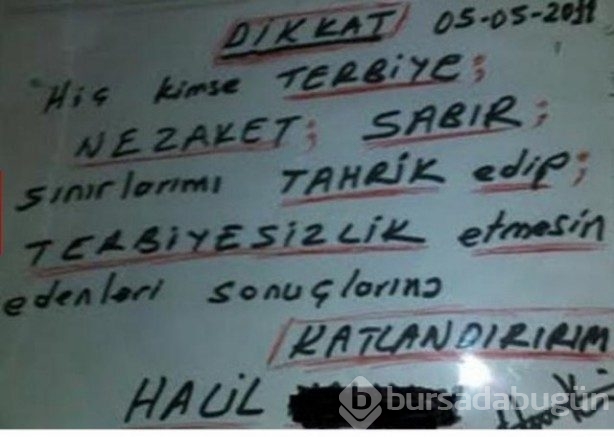 DİKKAT 05-05-2011
Hiç kimse TERBİYE;
NEZAKET; SABIR;
sınırlarımı TAHRİK edip;
TERBİYESİZLİK etmesin
edenleri sonuçlarına
KATLANDIRIRIM
HALİL
bursadabugün